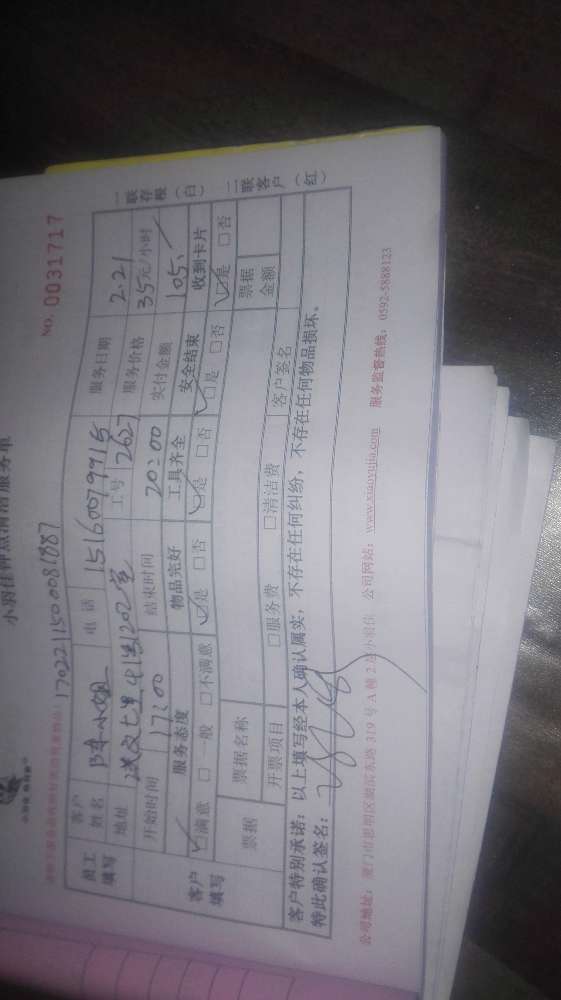 小羽佳钟点清洁服务单
NO. 0031717
170221150081887
员工填写
客户姓名 陈小姐 电话 15160079915 服务日期 2.21
地址 1202室 工号 2627 服务价格 35元/小时
开始时间 17:00 结束时间 20:00 实付金额 105.
客户填写
服务态度 物品完好 工具齐全 安全结束 收到卡片
☑满意 □一般 □不满意 ☑是 □否 ☑是 □否 ☑是 □否 ☑是 □否
票据 票据名称 票据金额
开票项目 □服务费 □清洁费 客户签名
客户特别承诺：以上填写经本人确认属实，不存在任何纠纷，不存在任何物品损坏。
特此确认签名：
公司地址：厦门市思明区湖滨东路319号A幢2层小羽佳 公司网站：www.xiaoyujia.com 服务监督热线：0592-5888123
一联存根（白） 二联客户（红）